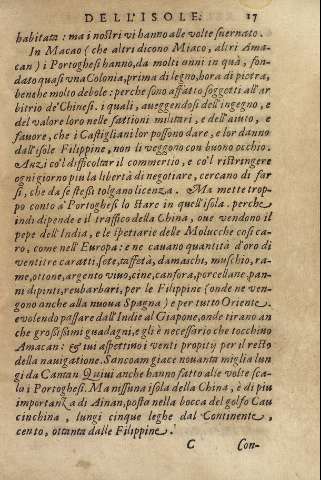 DELL'ISOLE. 17
habitata : ma i nostri vi hanno alle volte suernato.
In Macao ( che altri dicono Miaco, altri Ama-
can ) i Portoghesi hanno, da molti anni in quà, fon-
dato quasi vna Colonia, prima di legno, hora di pietra,
benche molto debole : perche sono affatto soggetti all'ar
bitrio de' Chinesi. i quali, aueggendosi dell'ingegno, e
del valore loro nelle fattioni militari, e dell'aiuto, e
fauore, che i Castigliani lor possono dare, e lor danno
dall'isole Filippine, non li veggono con buono occhio.
Anzi co'l difficoltar il commertio, e co'l ristringere
ogni giorno più la libertà di negotiare, cercano di far
sì, che da se stessi tolgano licenza. Ma mette trop-
po conto à Portoghesi lo stare in quell'isola. perche
indi dipende il traffico della China, oue vendono il
pepe dell'India, e le spetierie delle Molucche così ca-
ro, come nell'Europa : e ne cauano quantità d'oro di
ventitre caratti, sete, taffetà, damaschi, muschio, ra-
me, ottone, argento viuo, cine, canfora, porcellane, pan-
ni dipinti, reubarbari, per le Filippine (onde ne ven-
gono anche alla nuoua Spagna ) e per tutto Oriente
e volendo passare dall'Indie al Giapone, onde tirano an
che grossissimi guadagni, egli è necessario che tocchino
Amacan : & iui aspettino i venti propitij per il resto
della nauigatione. Sancoam giace nouanta miglia lun
gi da Cantan Quiui anche hanno fatto alle volte sca-
la i Portoghesi. Ma nissuna isola della China, è di più
importanza di Ainan, posta nella bocca del golfo Cau
cinchina, lungi cinque leghe dal Continente,
cento, ottanta dalle Filippine.
C Con-